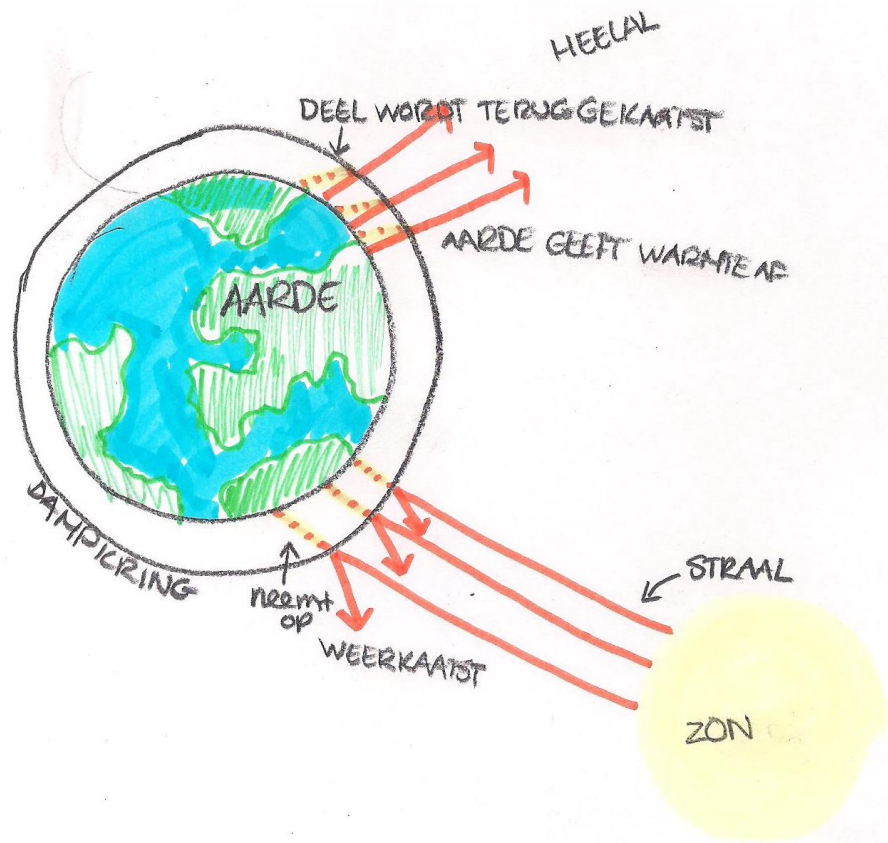 HEELAL
DEEL WORDT TERUG GEKAATST
AARDE GEEFT WARMTE AF
AARDE
DAMPKRING
neemt
op
WEERKAATST
STRAAL
ZON